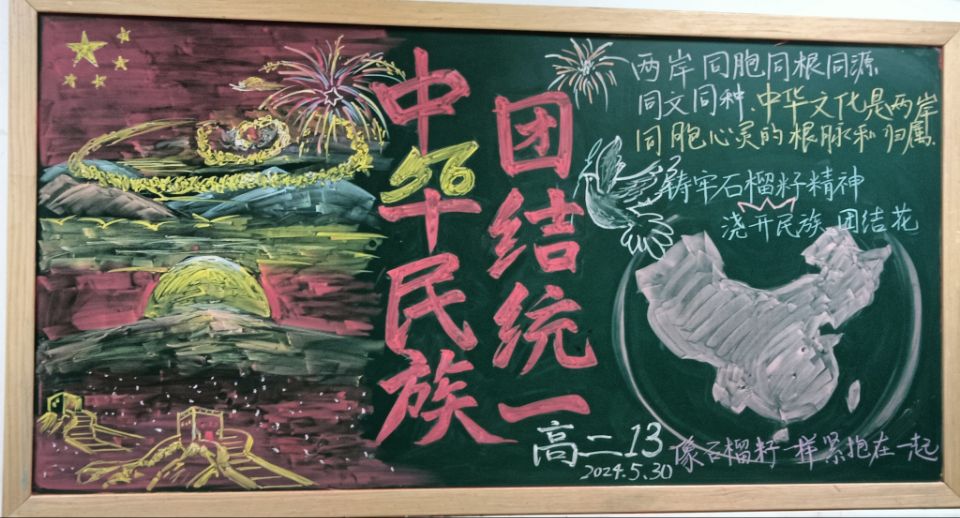 中华民族
团结统一
两岸同胞同根同源
同文同种.中华文化是两岸
同胞心灵的根脉和归属.
铸牢石榴籽精神
浇开民族团结花
高二13
2024.5.30
像石榴籽一样紧抱在一起